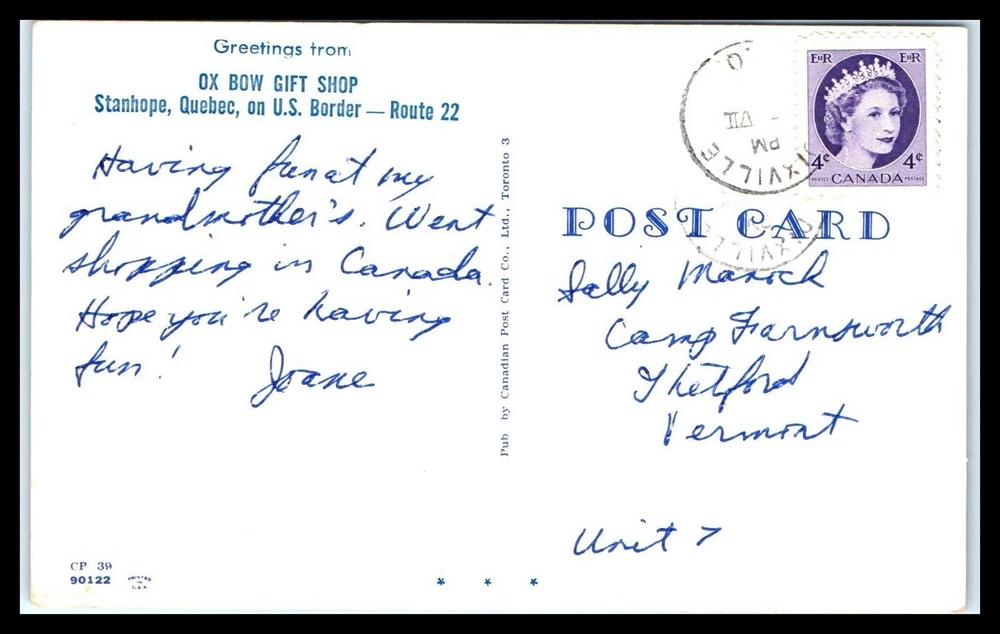 Greetings from
OX BOW GIFT SHOP
Stanhope, Quebec, on U.S. Border — Route 22
Having fun at my
grandmother's. Went
shopping in Canada.
Hope you're having
fun!
Joane
CP 39
90122
PRINTED
IN
U.S.A.
Pub by Canadian Post Card Co., Ltd., Toronto 3
* * *
PM
VII
IXVILLE
IXVILLE
E II R
E II R
4¢
4¢
POSTES CANADA POSTAGE
POST CARD
Sally Manock
Camp Farnsworth
Thetford
Vermont
Unit 7